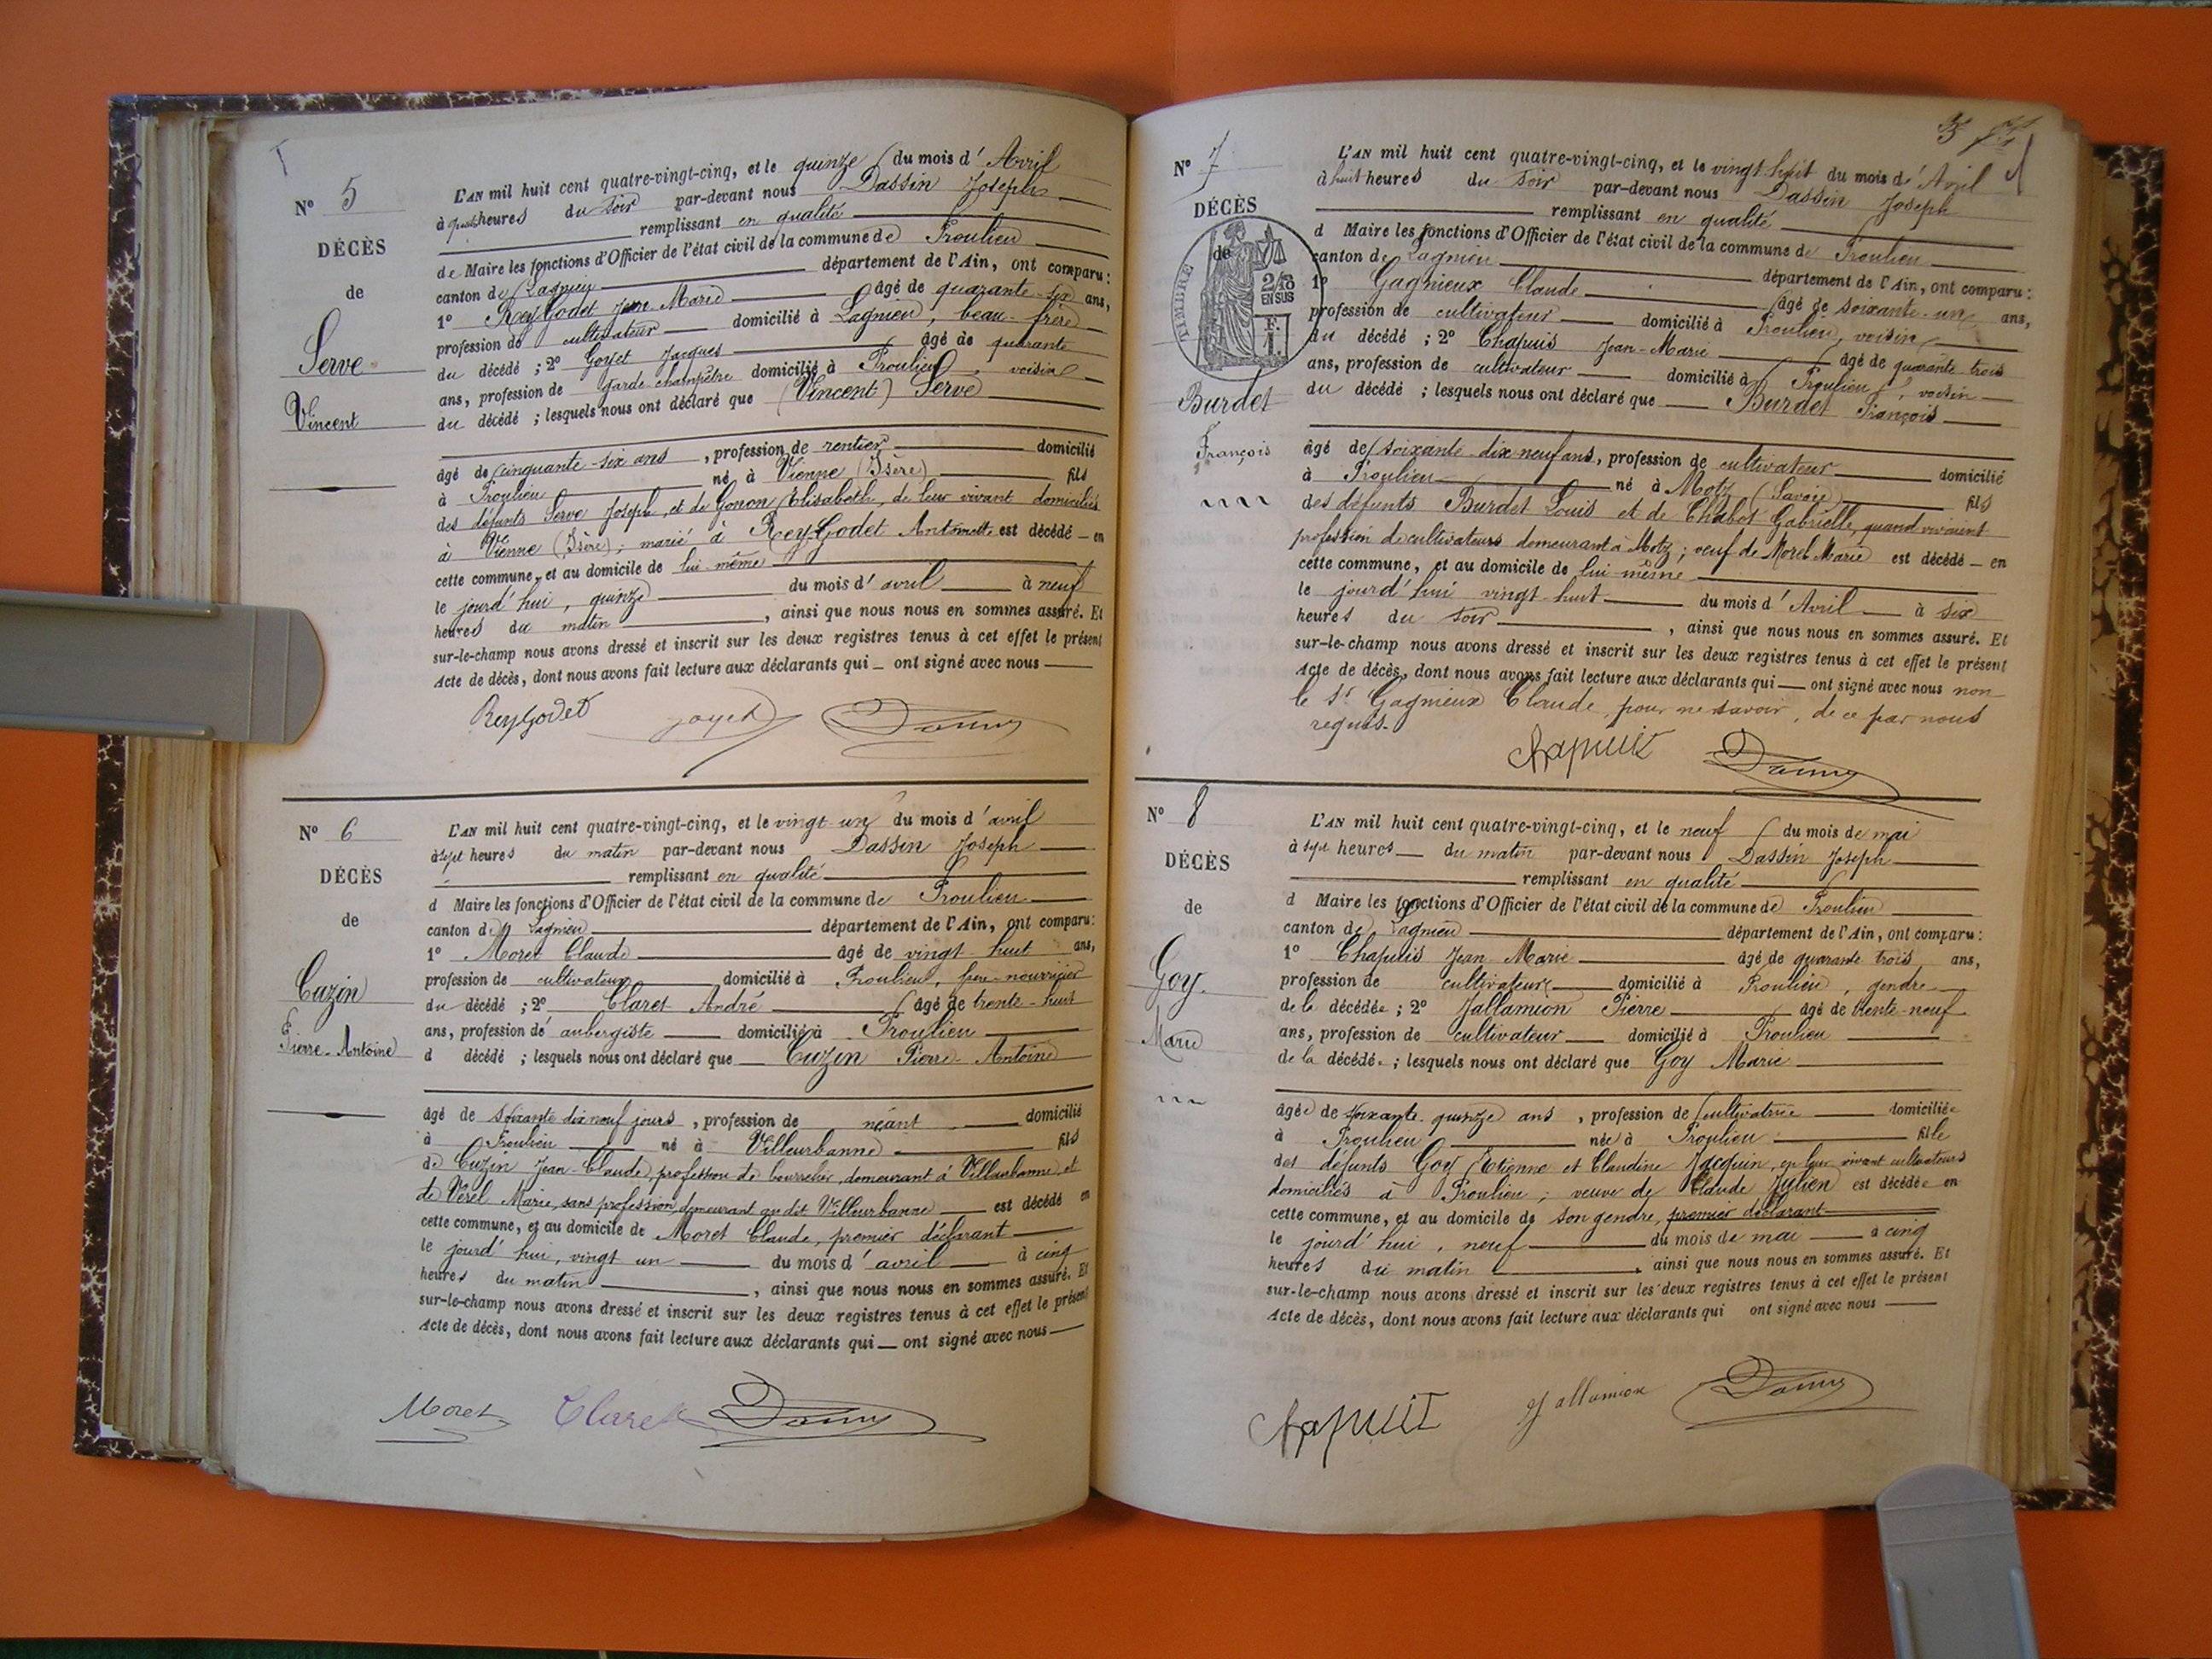 N° 5
DÉCÈS
de
Serve
Vincent
L'AN mil huit cent quatre-vingt-cinq, et le quinze du mois d'Avril
à quatre heures du soir par-devant nous Dassin Joseph
remplissant en qualité
de Maire les fonctions d'Officier de l'état civil de la commune de Proulieu
canton de Lagnieu département de l'Ain, ont comparu:
1° Rey Godet Jean Marie âgé de quarante-six ans,
profession de cultivateur domicilié à Lagnieu, beau-frère
du décédé ; 2° Goyet Jacques âgé de quarante
ans, profession de garde champêtre domicilié à Proulieu, voisin
du décédé ; lesquels nous ont déclaré que (Vincent) Serve
âgé de cinquante-six ans, profession de rentier domicilié
à Proulieu né à Vienne (Isère) fils
des défunts Serve Joseph, et de Gonon Elisabeth, de leur vivant domiciliés
à Vienne (Isère); marié à Rey-Godet Antoinette est décédé en
cette commune, et au domicile de lui-même
le jourd'hui, quinze du mois d'avril à neuf
heures du matin, ainsi que nous nous en sommes assuré. Et
sur-le-champ nous avons dressé et inscrit sur les deux registres tenus à cet effet le présent
Acte de décès, dont nous avons fait lecture aux déclarants qui ont signé avec nous
Rey Godet goyet Dassin
N° 6
DÉCÈS
de
Cuzin
Pierre-Antoine
L'AN mil huit cent quatre-vingt-cinq, et le vingt un du mois d'avril
à sept heures du matin par-devant nous Dassin Joseph
remplissant en qualité
d Maire les fonctions d'Officier de l'état civil de la commune de Proulieu
canton de Lagnieu département de l'Ain, ont comparu:
1° Moret Claude âgé de vingt-huit ans,
profession de cultivateur domicilié à Proulieu, père-nourricier
du décédé ; 2° Claret André âgé de trente-huit
ans, profession de aubergiste domicilié à Proulieu
d décédé ; lesquels nous ont déclaré que Cuzin Pierre-Antoine
âgé de soixante dix neuf jours, profession de néant domicilié
à Proulieu né à Villeurbanne fils
de Cuzin Jean-Claude, profession de bourrelier, demeurant à Villeurbanne, et
de Verel Marie, sans profession, demeurant au dit Villeurbanne est décédé en
cette commune, et au domicile de Moret Claude, premier déclarant
le jourd'hui, vingt un du mois d'avril à cinq
heures du matin, ainsi que nous nous en sommes assuré. Et
sur-le-champ nous avons dressé et inscrit sur les deux registres tenus à cet effet le présent
Acte de décès, dont nous avons fait lecture aux déclarants qui ont signé avec nous
Moret Claret Dassin
N° 7
DÉCÈS
de
TIMBRE
2/10
EN SUS
Burdet
François
L'AN mil huit cent quatre-vingt-cinq, et le vingt huit du mois d'Avril
à huit heures du soir par-devant nous Dassin Joseph
remplissant en qualité
d Maire les fonctions d'Officier de l'état civil de la commune de Proulieu
canton de Lagnieu département de l'Ain, ont comparu:
1° Gagnieux Claude âgé de soixante-un ans,
profession de cultivateur domicilié à Proulieu, voisin
du décédé ; 2° Chapuis Jean-Marie âgé de quarante trois
ans, profession de cultivateur domicilié à Proulieu, voisin
du décédé ; lesquels nous ont déclaré que Burdet François
âgé de soixante-dix neuf ans, profession de cultivateur domicilié
à Proulieu né à Motz (Savoie) fils
des défunts Burdet Louis et de Chabot Gabrielle, quand vivaient
profession de cultivateurs demeurant à Motz; veuf de Morel Marie est décédé en
cette commune, et au domicile de lui-même
le jourd'hui vingt huit du mois d'Avril à six
heures du soir, ainsi que nous nous en sommes assuré. Et
sur-le-champ nous avons dressé et inscrit sur les deux registres tenus à cet effet le présent
Acte de décès, dont nous avons fait lecture aux déclarants qui ont signé avec nous non
le Sr Gagnieux Claude, pour ne savoir, de ce par nous
requis.
Chapuis Dassin
N° 8
DÉCÈS
de
Goy
Marie
L'AN mil huit cent quatre-vingt-cinq, et le neuf du mois de mai
à sept heures du matin par-devant nous Dassin Joseph
remplissant en qualité
d Maire les fonctions d'Officier de l'état civil de la commune de Proulieu
canton de Lagnieu département de l'Ain, ont comparu:
1° Chapuis Jean Marie âgé de quarante trois ans,
profession de cultivateur domicilié à Proulieu, gendre
de la décédée ; 2° Jallamion Pierre âgé de trente-neuf
ans, profession de cultivateur domicilié à Proulieu
de la décédée ; lesquels nous ont déclaré que Goy Marie
âgée de soixante quinze ans, profession de cultivatrice domiciliée
à Proulieu née à Proulieu fille
des défunts Goy Etienne et Claudine Jacquin, en leur vivant cultivateurs
domiciliés à Proulieu; veuve de Claude Julien est décédée en
cette commune, et au domicile de son gendre, premier déclarant
le jourd'hui, neuf du mois de mai à cinq
heures du matin, ainsi que nous nous en sommes assuré. Et
sur-le-champ nous avons dressé et inscrit sur les deux registres tenus à cet effet le présent
Acte de décès, dont nous avons fait lecture aux déclarants qui ont signé avec nous
Chapuis Jallamion Dassin